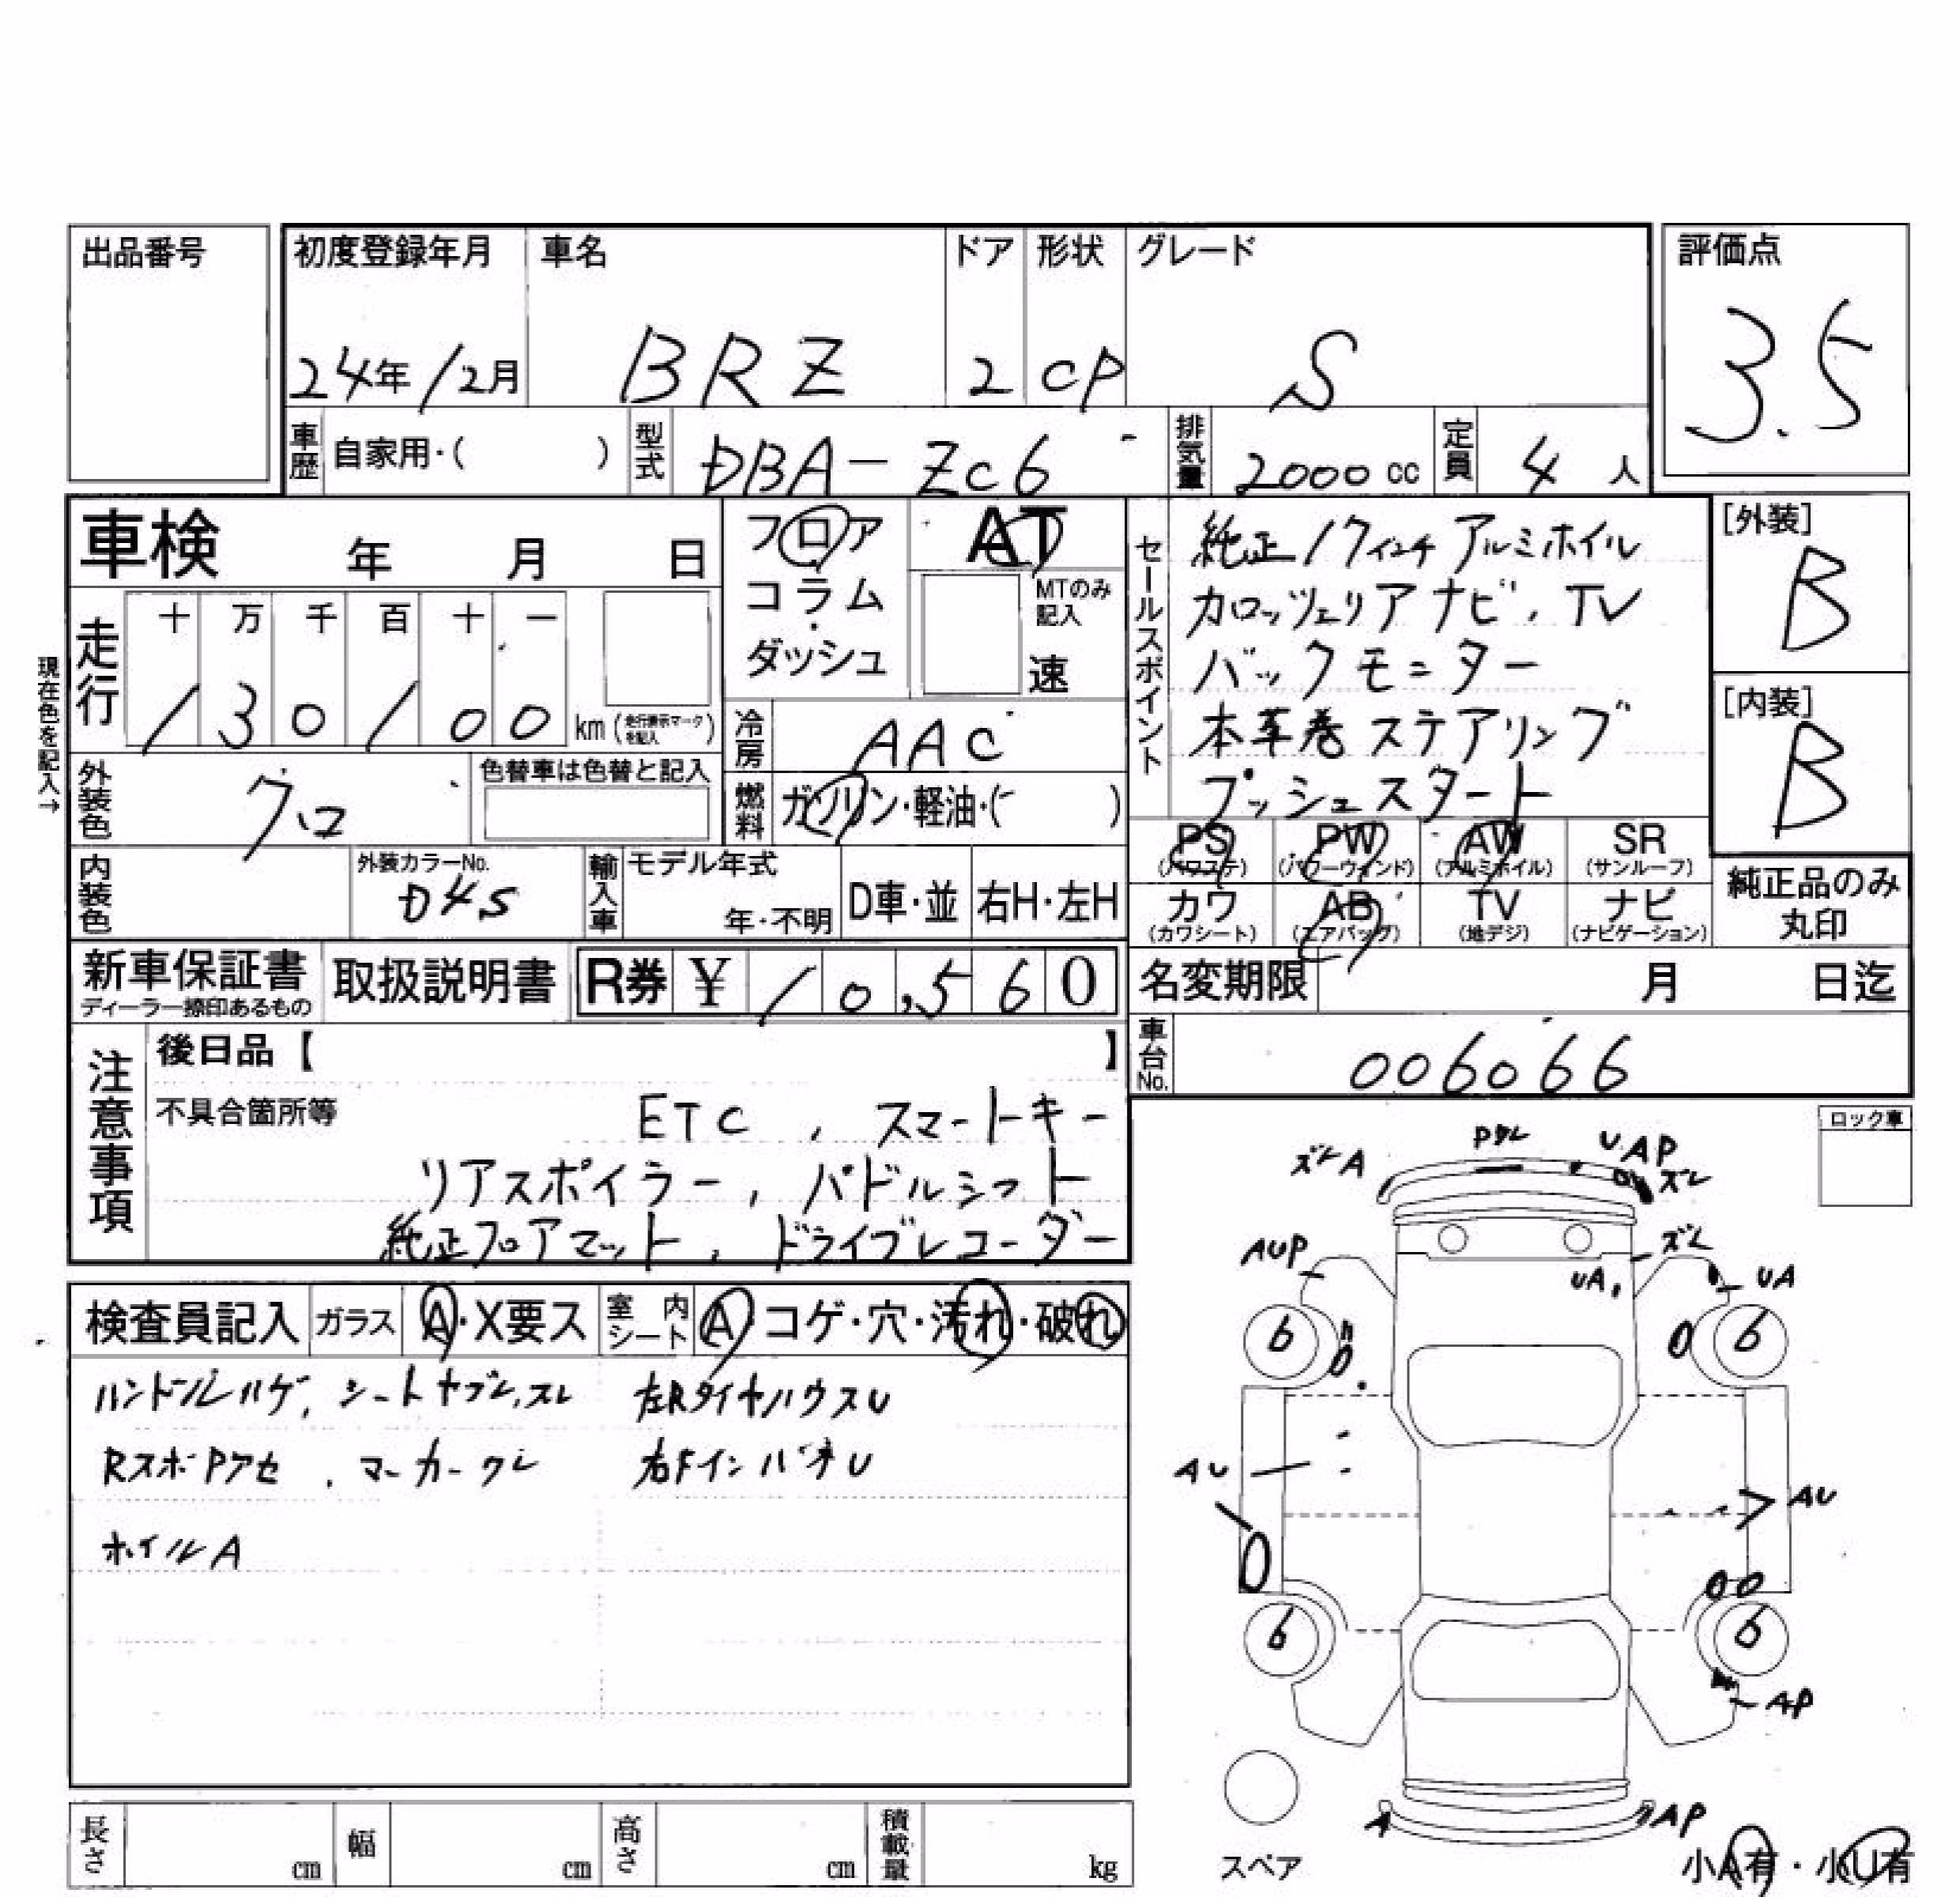 出品番号
初度登録年月 車名 ドア 形状 グレード 評価点
24年12月 BRZ 2 CP S 3.5
車歴 自家用・( ) 型式 DBA-ZC6 排気量 2000 cc 定員 4人
車検 年 月 日
フロア AT
コラム・ MTのみ記入
ダッシュ 速
走行 十 万 千 百 十 一
130100 km (走行表示マークを記入)
現在色を記入→
冷房 AAC
外装色 クロ 色替車は色替と記入
燃料 ガソリン・軽油・( )
内装色 外装カラーNo. D4S 輸入車 モデル年式 年・不明 D車・並 右H・左H
セールスポイント
純正17インチアルミホイル
カロッツェリアナビ、TV
バックモニター
本革巻ステアリング
プッシュスタート
[外装] B
[内装] B
PS PW AW SR
(パワステ) (パワーウィンド) (アルミホイル) (サンルーフ)
カワ AB TV ナビ
(カワシート) (エアバッグ) (地デジ) (ナビゲーション)
純正品のみ
丸印
新車保証書 取扱説明書 R券 ¥ 10,560
ディーラー捺印あるもの
名変期限 月 日迄
車台No. 006066
注意事項
後日品【 】
不具合箇所等 ETC , スマートキー
リアスポイラー, パドルシフト
純正フロアマット, ドライブレコーダー
検査員記入 ガラス A・X要ス 室内シート A・コゲ・穴・汚れ・破れ
ハンドルハゲ, シートヤブレ,スレ 左RタイヤハウスU
RスポPアセ , マーカークレ 右FインパネU
ホイルA
ロック車
ズレA UAP
ズレ
AUP ズレ
UA UA
6 6
AU AU
6 6
AP
A AP
スペア
小A有・小U有
長さ cm 幅 cm 高さ cm 積載量 kg